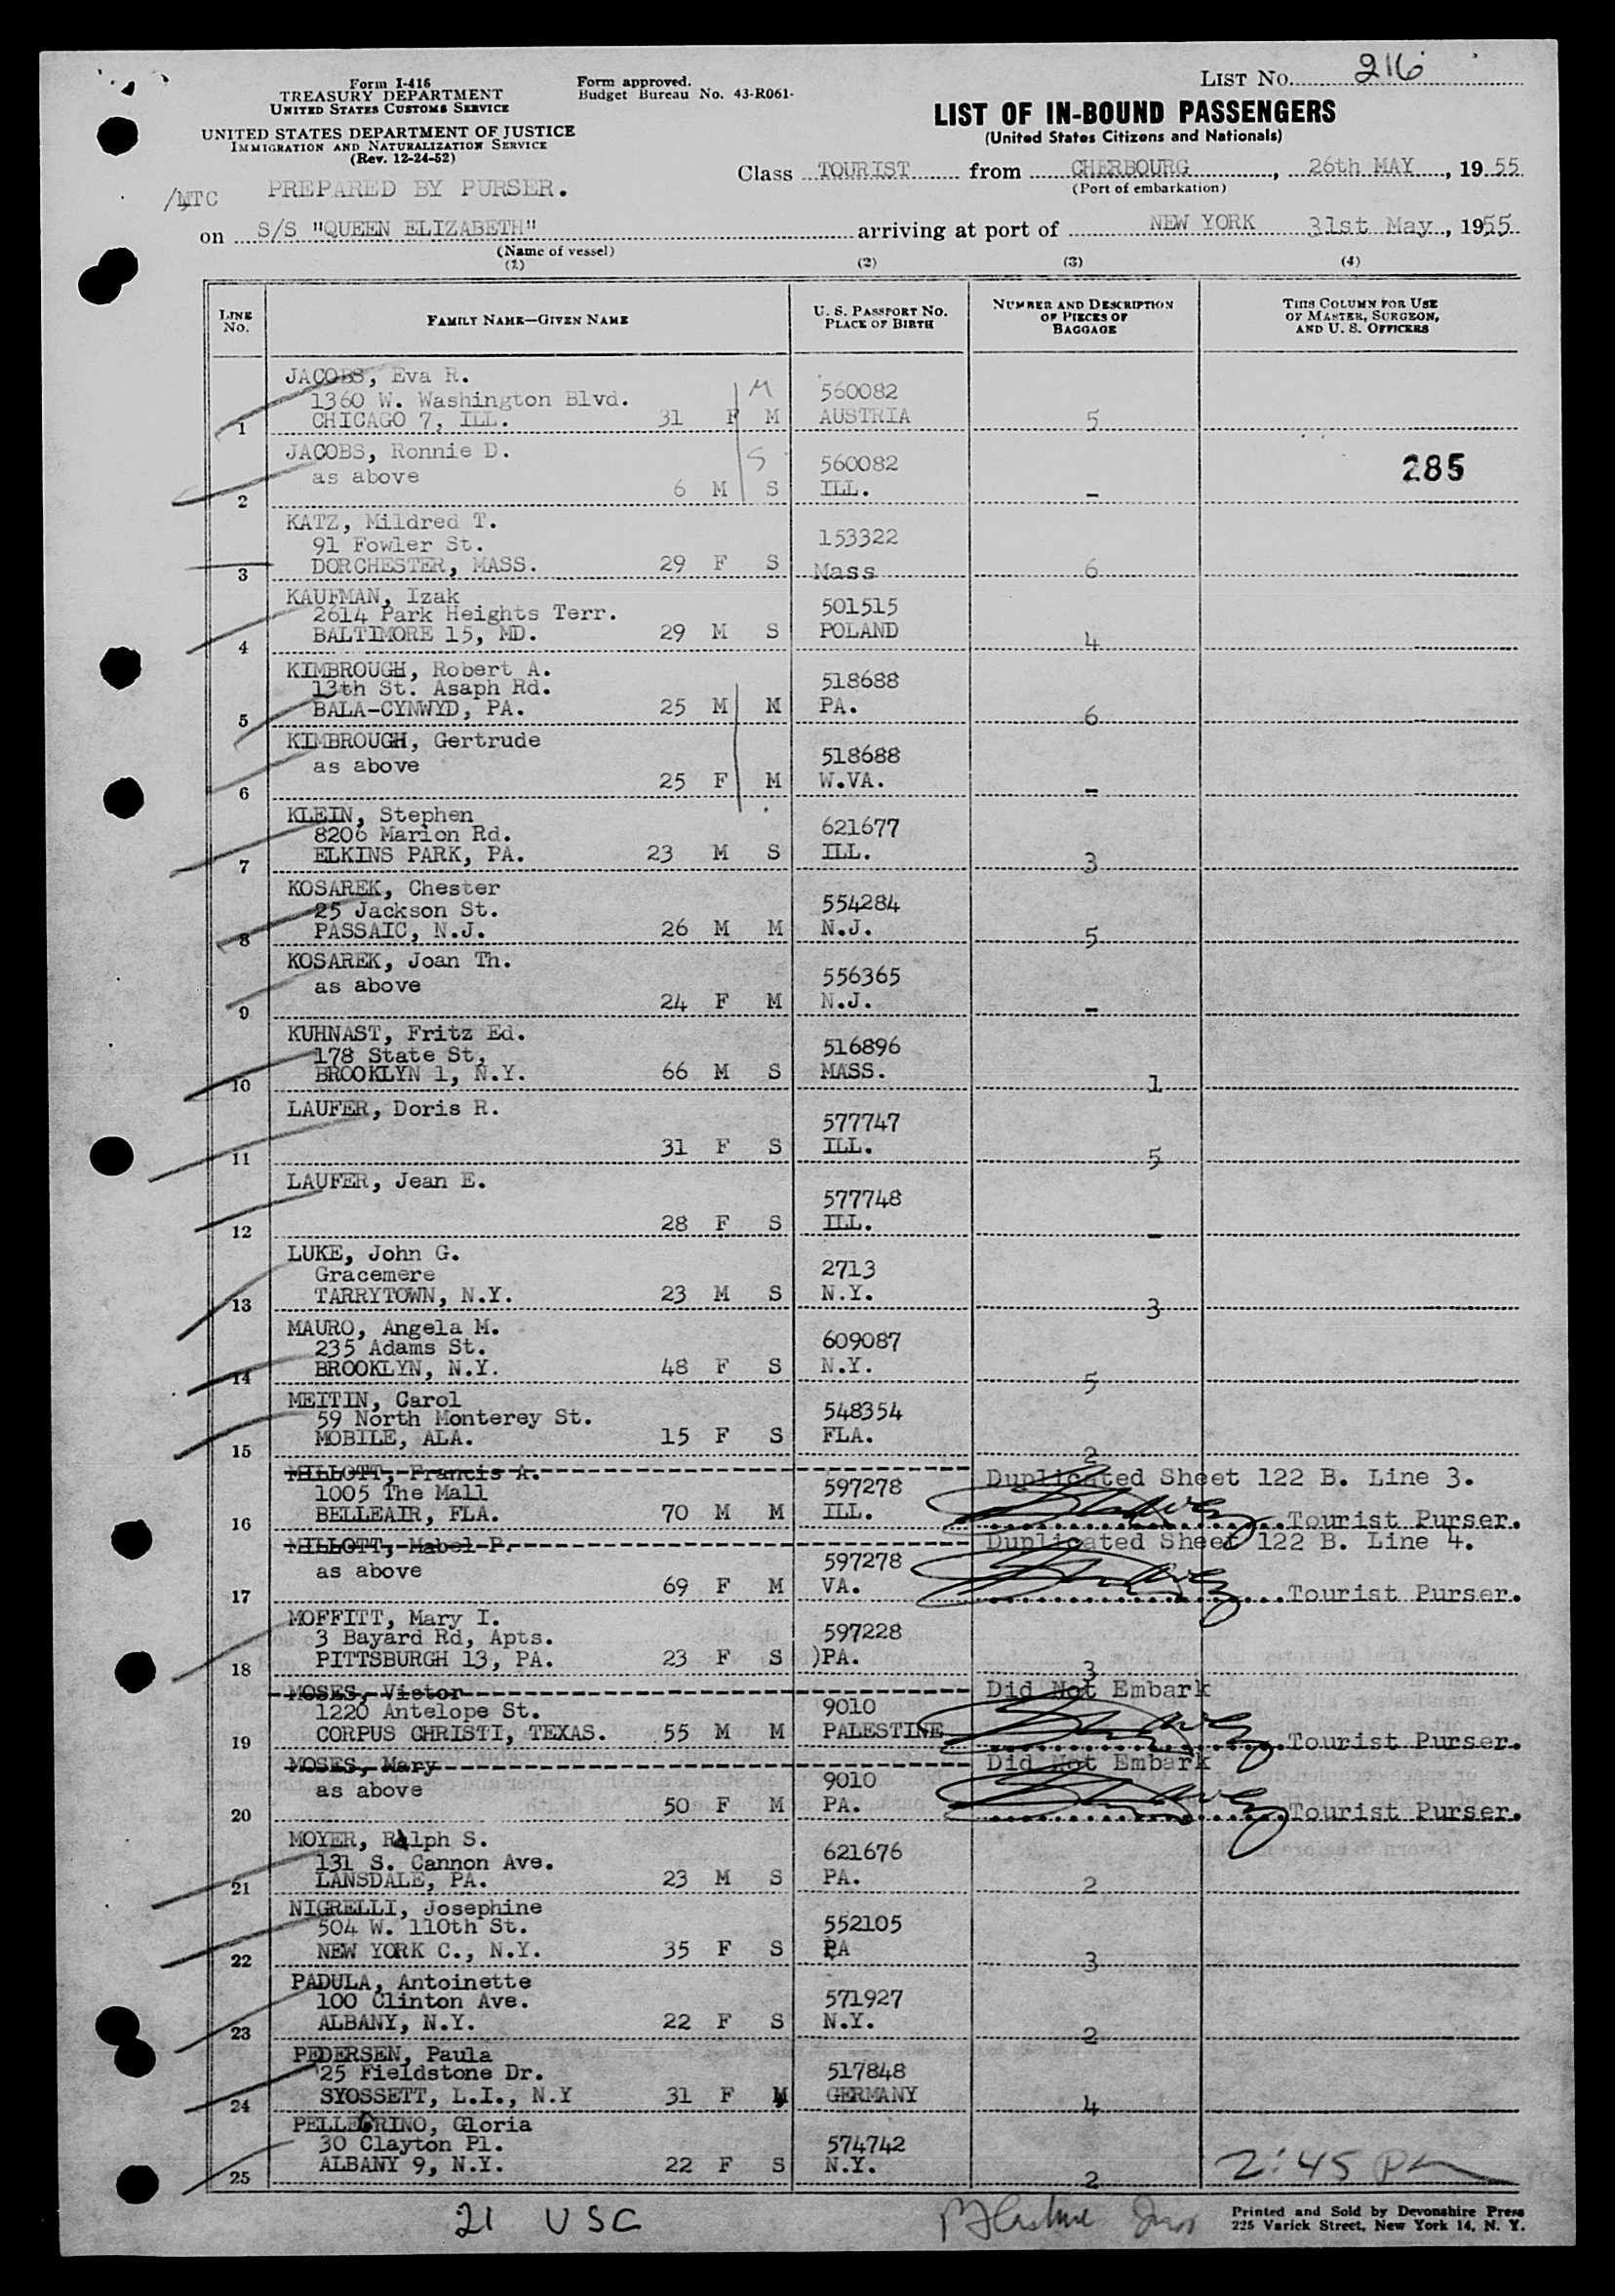 Form I-416
TREASURY DEPARTMENT
UNITED STATES CUSTOMS SERVICE
UNITED STATES DEPARTMENT OF JUSTICE
IMMIGRATION AND NATURALIZATION SERVICE
(Rev. 12-24-52)
Form approved.
Budget Bureau No. 43-R061-
LIST No. 216
LIST OF IN-BOUND PASSENGERS
(United States Citizens and Nationals)
Class TOURIST from CHERBOURG, 26th MAY, 1955
(Port of embarkation)
/MTC PREPARED BY PURSER.
on S/S "QUEEN ELIZABETH" arriving at port of NEW YORK 31st May, 1955
(Name of vessel)
(1) (2) (3) (4)
LINE NO. FAMILY NAME—GIVEN NAME U. S. PASSPORT NO. PLACE OF BIRTH NUMBER AND DESCRIPTION OF PIECES OF BAGGAGE THIS COLUMN FOR USE OF MASTER, SURGEON, AND U. S. OFFICERS
JACOBS, Eva R.
1360 W. Washington Blvd. M 560082
1 CHICAGO 7, ILL. 31 F M AUSTRIA 5
JACOBS, Ronnie D. S 560082 285
as above
2 6 M S ILL. -
KATZ, Mildred T.
91 Fowler St. 153322
3 DORCHESTER, MASS. 29 F S Mass 6
KAUFMAN, Izak
2614 Park Heights Terr. 501515
4 BALTIMORE 15, MD. 29 M S POLAND 4
KIMBROUGH, Robert A.
13th St. Asaph Rd. 518688
5 BALA-CYNWYD, PA. 25 M M PA. 6
KIMBROUGH, Gertrude
as above 518688
6 25 F M W.VA. -
KLEIN, Stephen
8206 Marion Rd. 621677
7 ELKINS PARK, PA. 23 M S ILL. 3
KOSAREK, Chester
25 Jackson St. 554284
8 PASSAIC, N.J. 26 M M N.J. 5
KOSAREK, Joan Th.
as above 556365
9 24 F M N.J. -
KUHNAST, Fritz Ed.
178 State St, 516896
10 BROOKLYN 1, N.Y. 66 M S MASS. 1
LAUFER, Doris R.
577747
11 31 F S ILL. 5
LAUFER, Jean E.
577748
12 28 F S ILL. -
LUKE, John G.
Gracemere 2713
13 TARRYTOWN, N.Y. 23 M S N.Y. 3
MAURO, Angela M.
235 Adams St. 609087
14 BROOKLYN, N.Y. 48 F S N.Y. 5
MEITIN, Carol
59 North Monterey St. 548354
15 MOBILE, ALA. 15 F S FLA. 2
MILLOTT, Francis A. Duplicated Sheet 122 B. Line 3.
1005 The Mall 597278
16 BELLEAIR, FLA. 70 M M ILL. Tourist Purser.
MILLOTT, Mabel P. Duplicated Sheet 122 B. Line 4.
as above 597278
17 69 F M VA. Tourist Purser.
MOFFITT, Mary I.
3 Bayard Rd, Apts. 597228
18 PITTSBURGH 13, PA. 23 F S )PA. 3
MOSES, Victor Did Not Embark
1220 Antelope St. 9010
19 CORPUS CHRISTI, TEXAS. 55 M M PALESTINE Tourist Purser.
MOSES, Mary Did Not Embark
as above 9010
20 50 F M PA. Tourist Purser.
MOYER, Ralph S.
131 S. Cannon Ave. 621676
21 LANSDALE, PA. 23 M S PA. 2
NIGRELLI, Josephine
504 W. 110th St. 552105
22 NEW YORK C., N.Y. 35 F S PA 3
PADULA, Antoinette
100 Clinton Ave. 571927
23 ALBANY, N.Y. 22 F S N.Y. 2
PEDERSEN, Paula
25 Fieldstone Dr. 517848
24 SYOSSETT, L.I., N.Y 31 F M GERMANY 4
PELLEGRINO, Gloria
30 Clayton Pl. 574742
25 ALBANY 9, N.Y. 22 F S N.Y. 2 2:45 PM
21 USC
Printed and Sold by Devonshire Press
225 Varick Street, New York 14, N. Y.